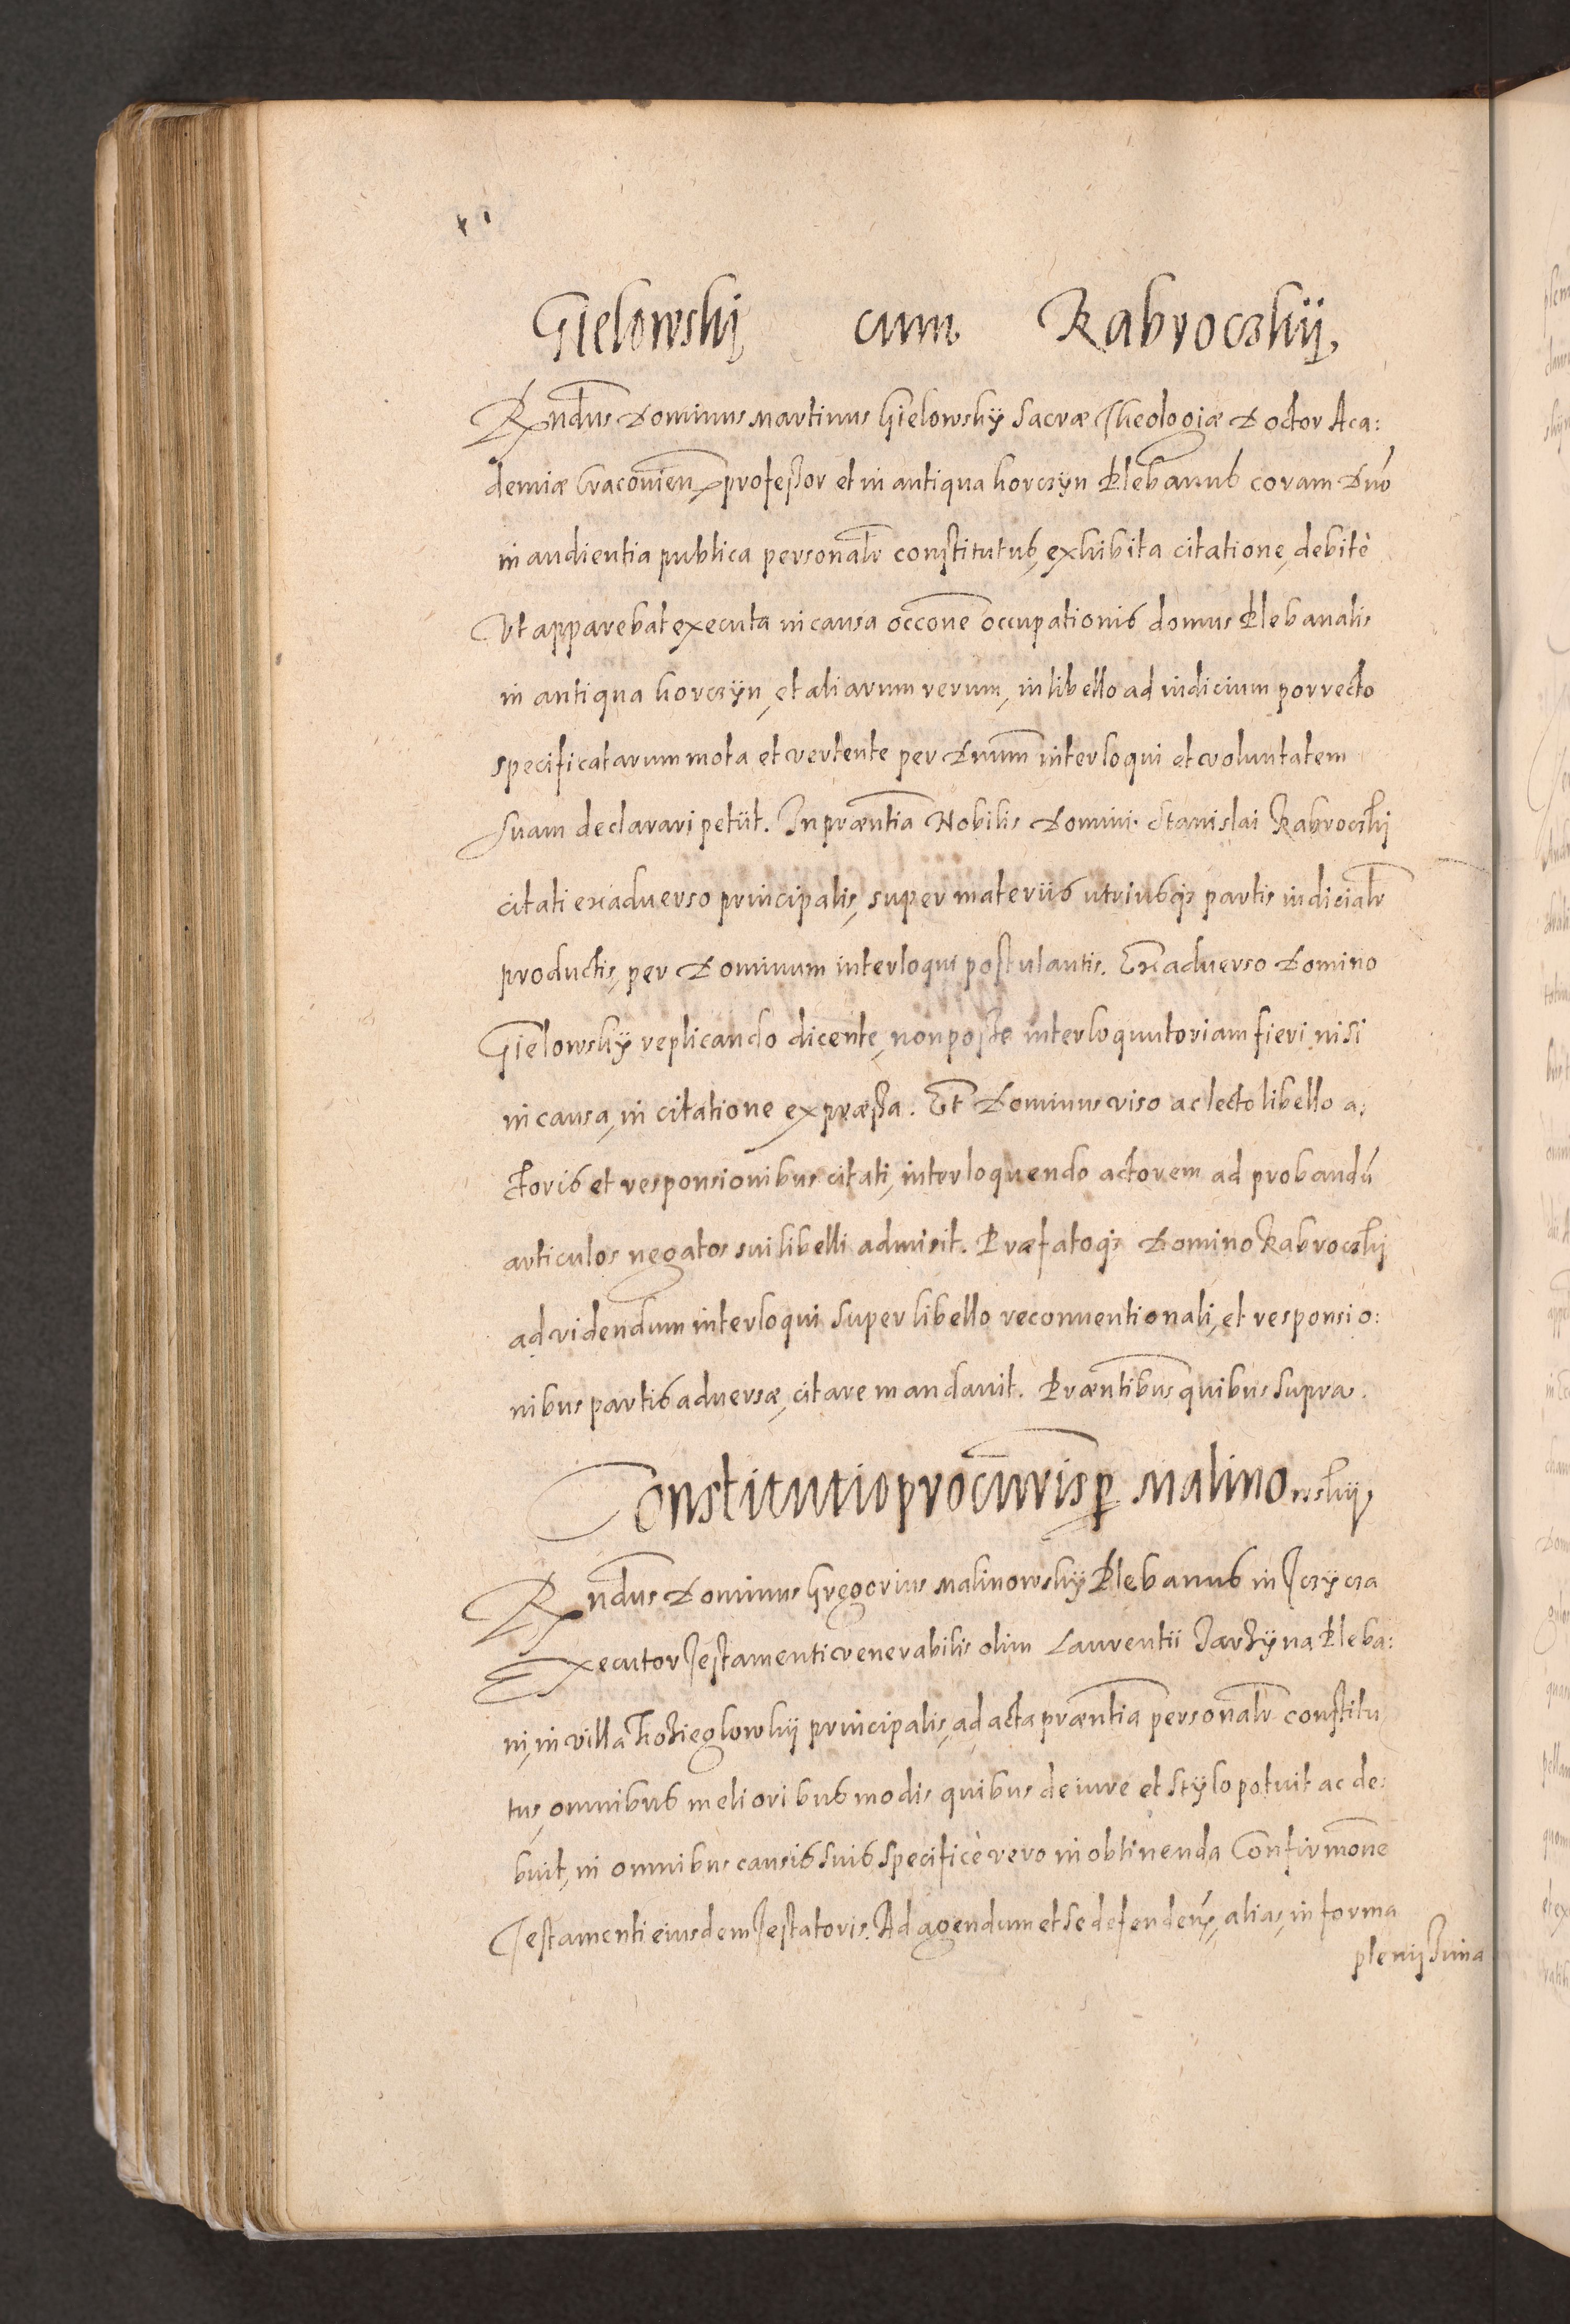 Gielowski cum Kabroczkij
Rndus Dominus Martinus Gielowskÿ Sacræ Theologiæ Doctor Aca:
demiæ Cracovien professor et in antiqua Korczÿn Plebanus coram Dno
in audientia publica personalr constitutus, exhibita citatione, debitè
Ut apparebat executa in causa occone occupationis domus Plebanalis
in antiqua Korczÿn, et aliarum rerum, in libello ad iudicium porrecto
specificatarum mota et vertente per Dnum interloqui et voluntatem
suam declarari petÿt. In præntia Nobilis Domini Stanislai Kabroczki
citati ex adverso principalis, super materiis utriusq3 partis iudicialr
productis, per Dominum interloqui postulantis. Ex adverso Domino
Gielowskÿ replicando dicente, non posse interloquutoriam fieri nisi
in causa, in citatione expræssa. Et Dominus viso ac lecto libello a:
ctoris et responsionibus citati, interloquendo actorem ad probandū
articulos negatos sui libelli admisit. Præfatoq3 Domino Kabroczki
ad videndum interloqui super libello reconventionali, et responsio:
nibus partis adversæ, citare mandavit. Præntibus quibus supra.
Constitutio procuris per Malinowskij
Rndus Dominus Gregorius Malinowskÿ Plebanus in Jczÿcza
Executor Testamenti venerabilis olim Laurentii Jarzÿna Pleba:
ni, in villa principalis, ad acta præntia personalr constitu
tus, omnibus melioribus modis quibus de iure et stÿlo potuit ac de:
buit, in omnibus causis suis specificè vero in obtinenda Confirmone
Testamenti eiusdem Testatoris. Ad agendum et se defendenū, alias, in forma
plenissima